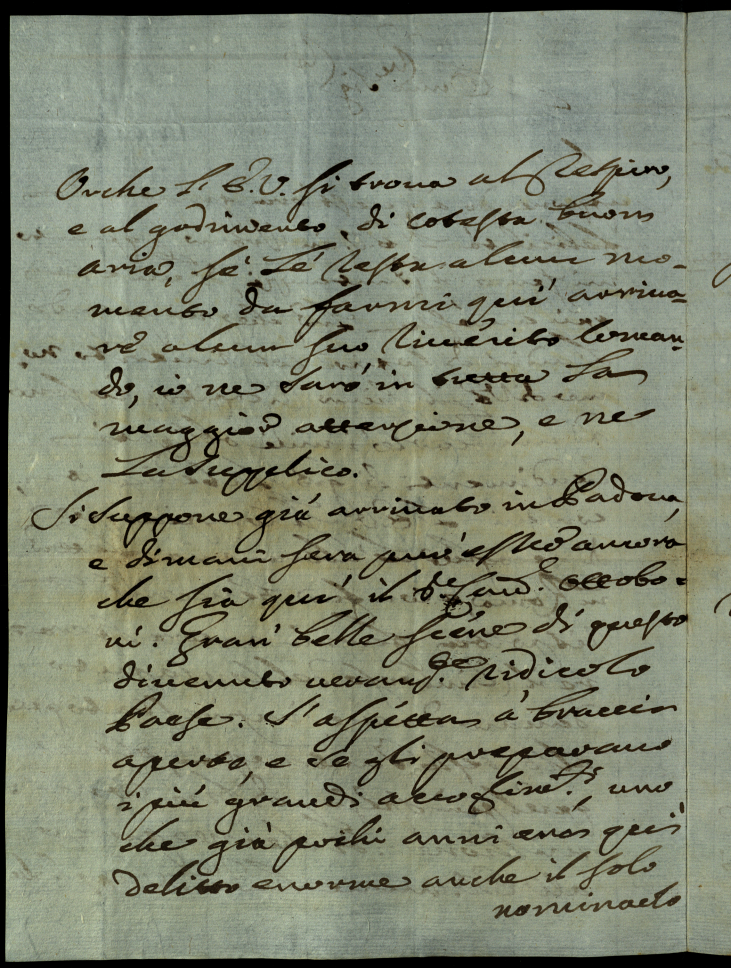 Orche L' E. V. si trova al Respiro,
e al godimento, di cotesta buon
aria, se Le resta alcun mo-
mento da farmi quì arriva-
re alcun suo riverito coman-
do, io ne sarò in tutta La
maggior attenzione, e ne
La supplico.
Si suppone già arrivato in Padova,
e dimani sera può esser ancora
che sia quì il S.r Card. Ottobo-
ni. Gran belle scene di questo
divenuto veram.te ridicolo
Paese. S'aspetta à braccia
aperte, e se gli preparano
i più grandi accoglim.ti, uno
che già pochi anni era quì
delitto enorme anche il solo
nominarlo